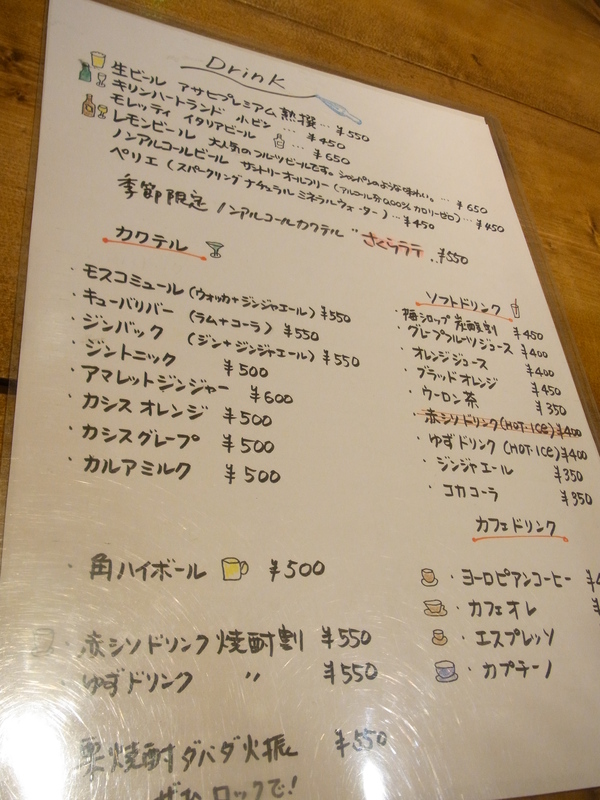 Drink
生ビール アサヒプレミアム熟撰… ¥550
キリンハートランド 小ビン … ¥450
モレッティ イタリアビール … ¥650
レモンビール 大人気のフルーツビールです。シャンパンのような味わい。… ¥650
ノンアルコールビール サントリーオールフリー(アルコール分0.00% カロリーゼロ)… ¥450
ペリエ(スパークリングナチュラルミネラルウォーター)… ¥450
季節限定 ノンアルコールカクテル "さくらラテ ‥¥550
カクテル
・モスコミュール(ウォッカ+ジンジャエール) ¥550
・キューバリバー (ラム+コーラ) ¥550
・ジンバック (ジン+ジンジャエール) ¥550
・ジントニック ¥500
・アマレットジンジャー ¥600
・カシスオレンジ ¥500
・カシスグレープ ¥500
・カルアミルク ¥500
・角ハイボール ¥500
・赤シソドリンク焼酎割 ¥550
・ゆずドリンク 〃 ¥550
栗焼酎ダバダ火振 ¥550
ぜひロックで!
ソフトドリンク
・梅シロップ炭酸割 ¥450
・グレープフルーツジュース ¥400
・オレンジジュース ¥400
・ブラッドオレンジ ¥450
・ウーロン茶 ¥350
・赤シソドリンク(HOT・ICE) ¥400
・ゆずドリンク(HOT・ICE) ¥400
・ジンジャエール ¥350
・コカコーラ ¥350
カフェドリンク
・ヨーロピアンコーヒー ¥
・カフェオレ ¥
・エスプレッソ
・カプチーノ